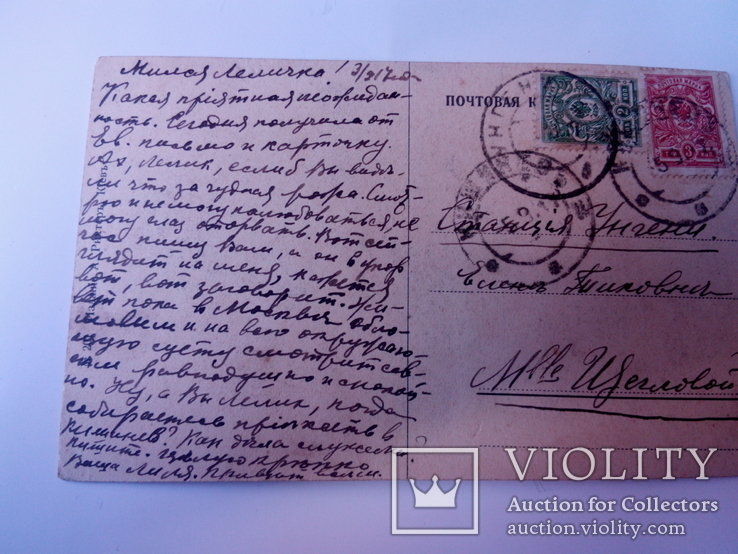 Милая Леличка! 3/
Какая пріятная неожидан-
ность. Сегодня получила от
Ев. письмо и карточку.
Ах, Лелик, еслиб Вы виде-
ли что за чудная рожа. Смот-
рю и не могу налюбоваться, не
могу глаз оторвать. Вот сей-
час пишу Вам, а он в упор
глядит на меня, кажется
вот, вот заговорит. Жи-
вет пока в Москве
и на всю окружаю-
щую суету смотрит сов-
сем равнодушно и спокой-
но. Ну, а Вы Лелик, когда
собираетесь пріехать в
Кишинев? Как дела службы?
пишите. Целую крепко
Ваша Лиля. Привет всем.
ПОЧТОВАЯ К
2 КОП
3
Станція Унгени.
Елене Тиховне
Mlle Щегловой
VIOLITY
Auction for Collectors
auction.violity.com